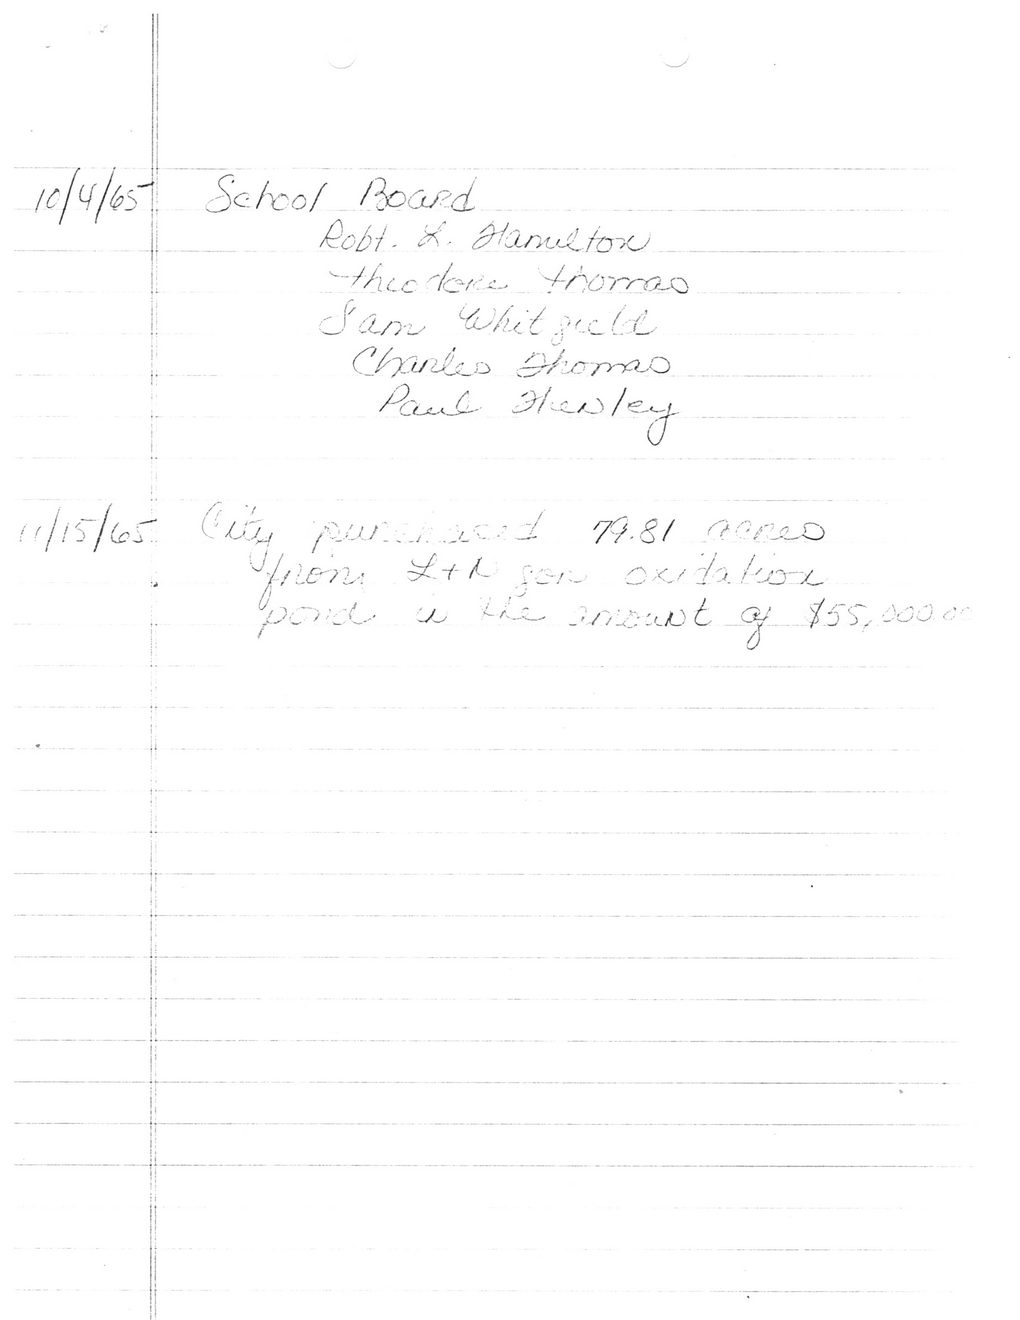 10/4/65 School Board
Robt. L. Hamilton
Theodore Thomas
Sam Whitfield
Charles Thomas
Paul Henley
11/15/65 City purchased 79.81 acres
from L+N for oxidation
pond in the amount of $55,000.00